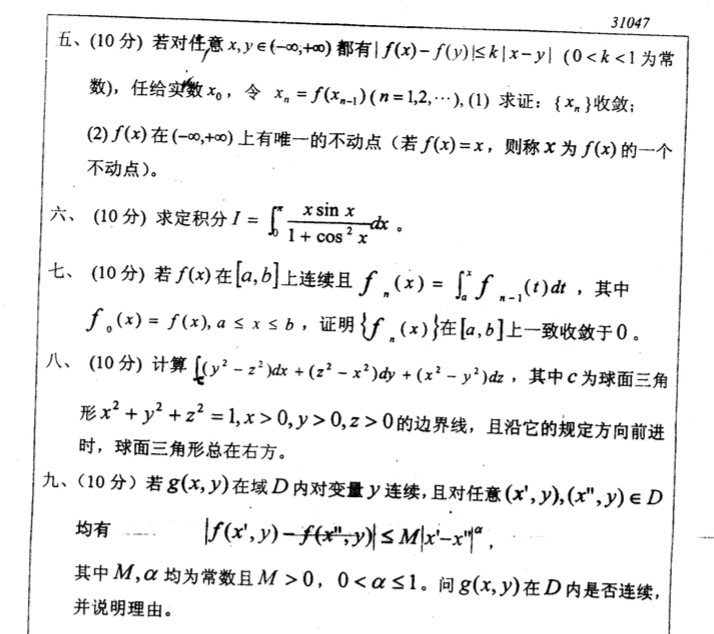 31047
五、(10 分) 若对任意 x, y ∈ (−∞,+∞) 都有 | f(x) − f(y) | ≤ k | x − y | (0 < k < 1 为常
数), 任给实数 x₀ , 令 xₙ = f(xₙ₋₁) ( n = 1,2, ⋯ ), (1) 求证: { xₙ }收敛;
(2) f(x) 在 (−∞,+∞) 上有唯一的不动点 (若 f(x) = x, 则称 x 为 f(x) 的一个
不动点)。
六、 (10 分) 求定积分 I = ∫₀^π (x sin x)/(1 + cos² x) dx 。
七、 (10 分) 若 f(x) 在 [a, b] 上连续且 fₙ(x) = ∫ₐˣ fₙ₋₁(t)dt , 其中
f₀(x) = f(x), a ≤ x ≤ b , 证明 {fₙ(x)}在 [a, b] 上一致收敛于 0 。
八、 (10 分) 计算 ∫_c (y² − z²)dx + (z² − x²)dy + (x² − y²)dz , 其中 c 为球面三角
形 x² + y² + z² = 1, x > 0, y > 0, z > 0 的边界线, 且沿它的规定方向前进
时, 球面三角形总在右方。
九、(10 分) 若 g(x, y) 在域 D 内对变量 y 连续, 且对任意 (x', y), (x'', y) ∈ D
均有 |f(x', y) − f(x'', y)| ≤ M|x'−x''|^α ,
其中 M, α 均为常数且 M > 0, 0 < α ≤ 1。问 g(x, y) 在 D 内是否连续,
并说明理由。